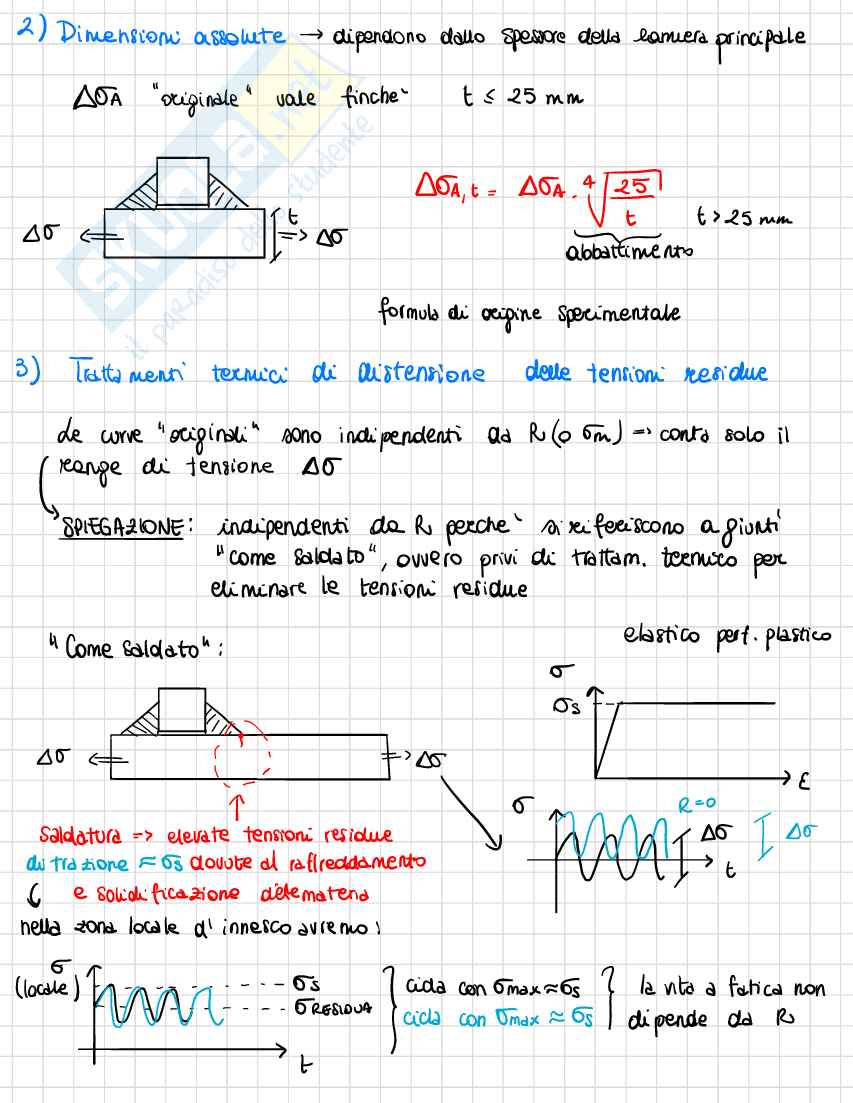 2) Dimensioni assolute → dipendono dallo spessore della lamiera principale
ΔσA "originale" vale finche` t ≤ 25 mm
Δσ
t
Δσ
ΔσA,t = ΔσA · ⁴√(25/t) t > 25 mm
abbattimento
formula di origine sperimentale
3) Trattamenti termici di distensione delle tensioni residue
Le curve "originali" sono indipendenti da R (o σm) => conta solo il
range di tensione Δσ
SPIEGAZIONE: indipendenti da R perche` si riferiscono a giunti
"come saldato", ovvero privi di trattam. termico per
eliminare le tensioni residue
"Come saldato":
elastico perf. plastico
σ
σs
ε
Δσ
Δσ
σ
R=0
Δσ
Δσ
t
Saldatura => elevate tensioni residue
di trazione ≈ σs dovute al raffreddamento
e solidificazione
nella zona locale d'innesco avremo:
σ
(locale)
σs
σRESIDUA
t
cicla con σmax≈σs
cicla con σmax ≈ σs
la vita a fatica non
dipende da R
SKUOLA.net
il paradiso dello studente